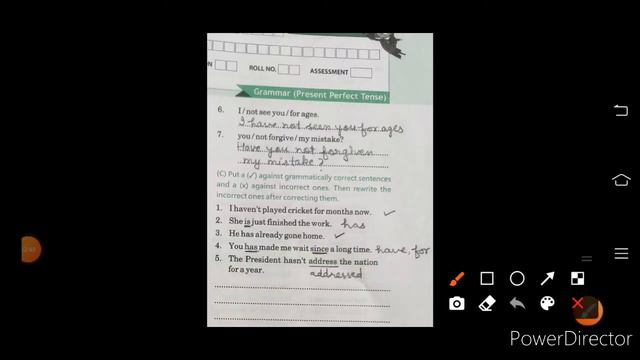 ROLL NO.
ASSESSMENT
Grammar (Present Perfect Tense)
6. I / not see you / for ages.
I have not seen you for ages
7. you / not forgive / my mistake?
Have you not forgiven
my mistake?
(C) Put a (✓) against grammatically correct sentences
and a (x) against incorrect ones. Then rewrite the
incorrect ones after correcting them.
1. I haven't played cricket for months now. ✓
2. She is just finished the work. has
3. He has already gone home. ✓
4. You has made me wait since a long time. have, for
5. The President hasn't address the nation
for a year. addressed
PowerDirector